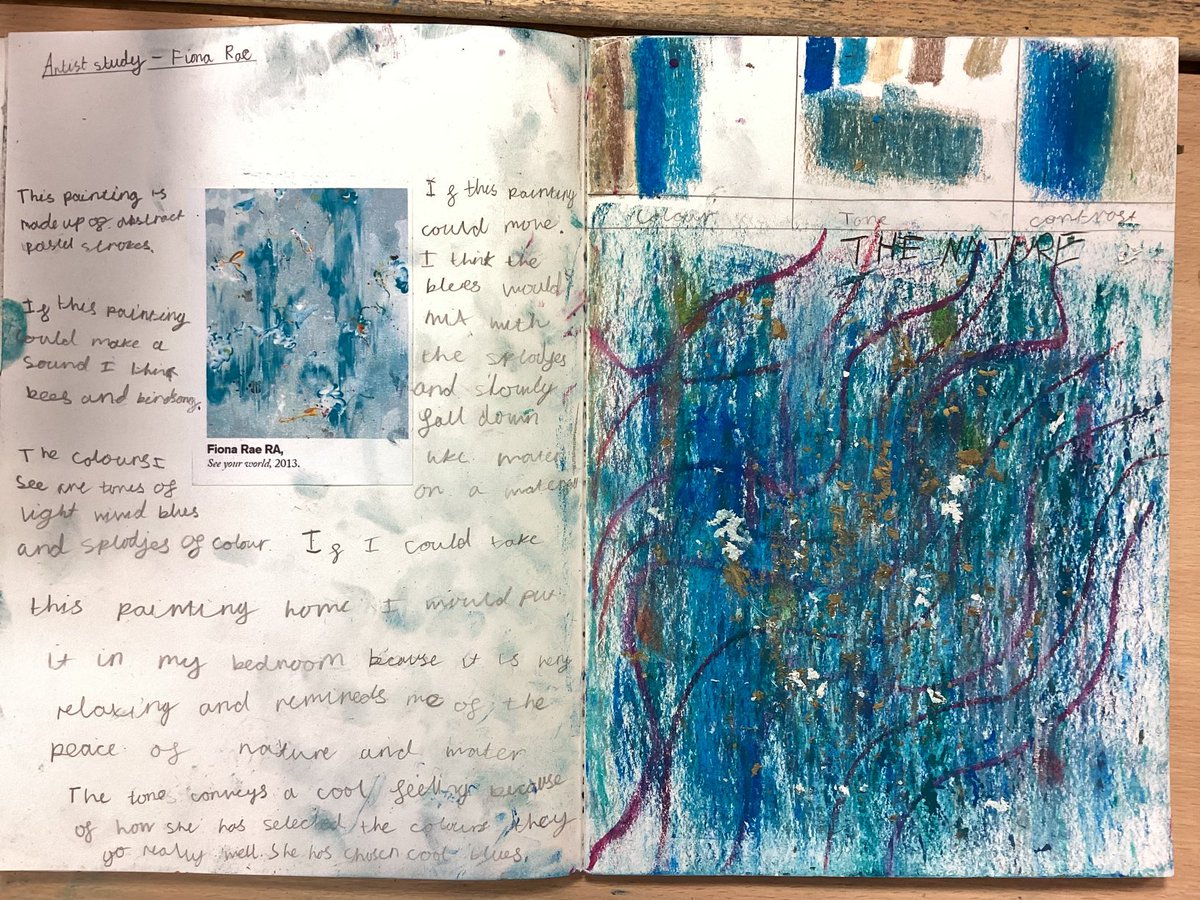 Artist study - Fiona Rae
This painting is
made up of abstract
pastel strokes.
If this painting
could make a
sound I think
bees and birdsong.
The colours I
see are tones of
light wind blues
and splodjes of colour. If I could take
this painting home I would put
it in my bedroom because it is very
relaxing and remineds me of the
peace of nature and water
The tone conveys a cool feeling because
of how she has selected the colours they
go really well. She has chosen cool blues.
Fiona Rae RA,
See your world, 2013.
If this painting
could move.
I think the
blees would
mix with
the splodjes
and slowly
fall down
like water
on a
colour
Tone
contrast
THE NATURE